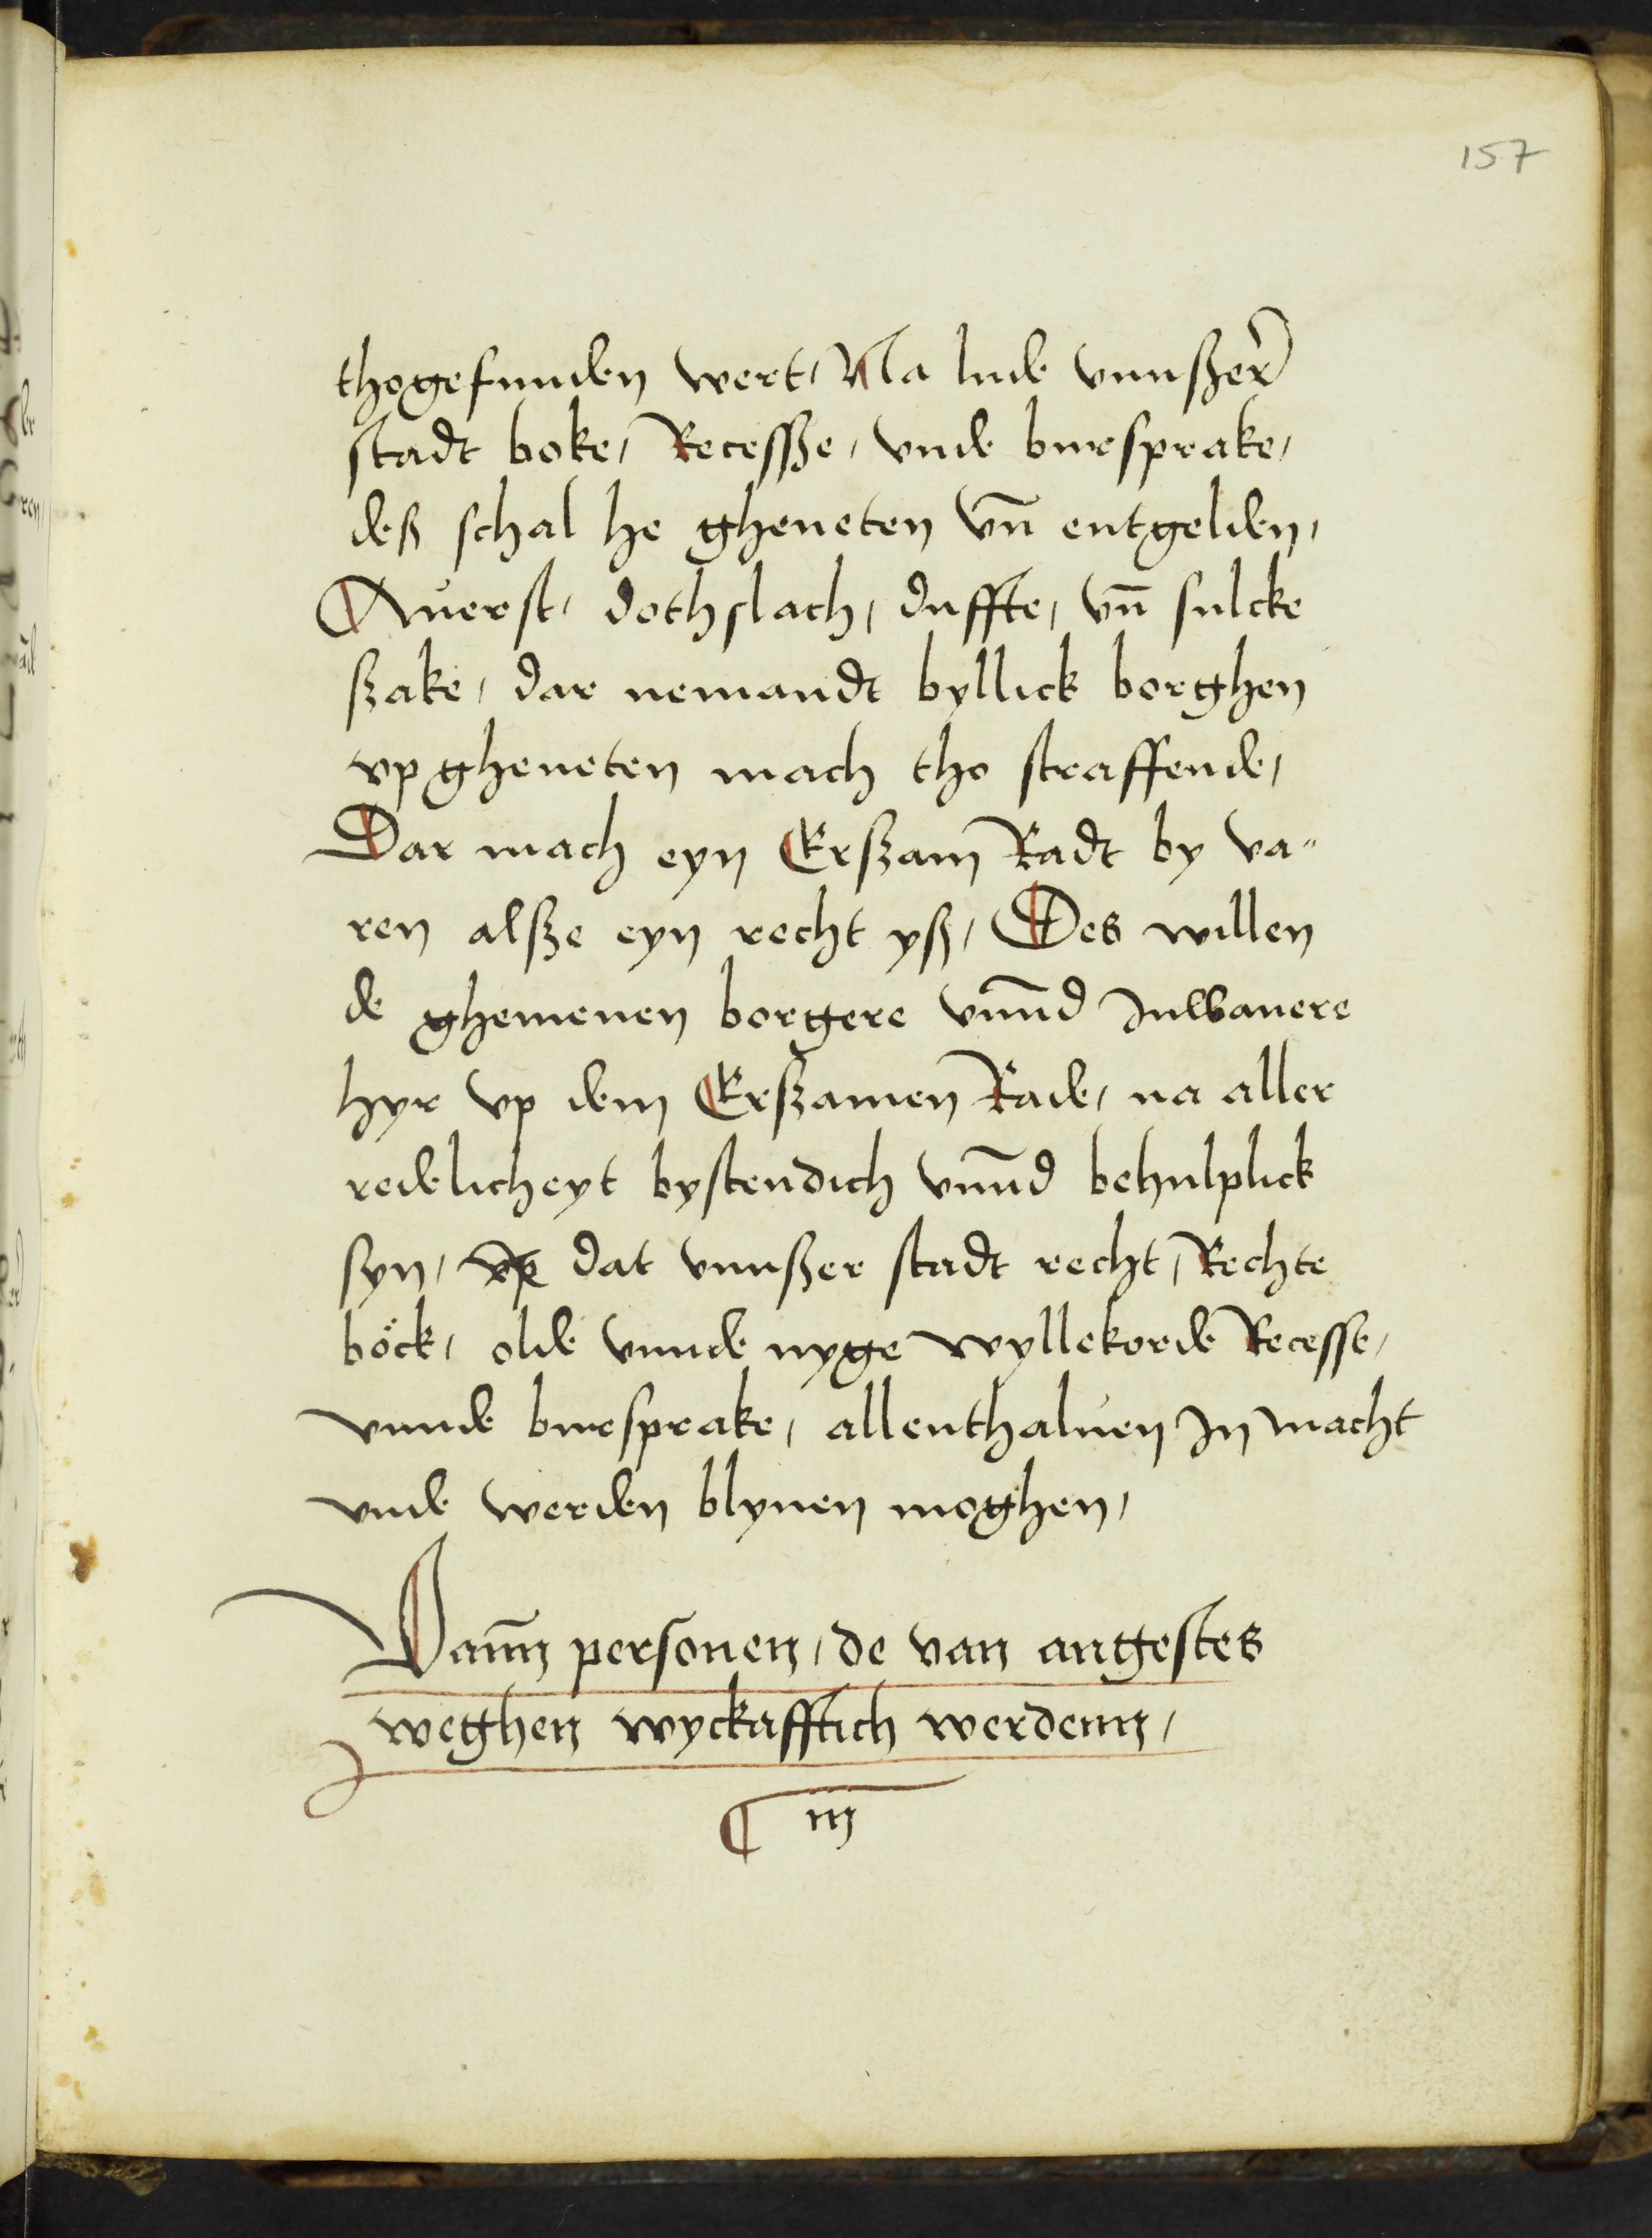 157
thogefunden wert, Na lude vnnßer̃
stadt boke, Recessze, vnde bursprake,
deß schal he gheneten vn̄ entgelden,
Auerst, dothslach, duffte, vn̄ sulcke
szake, dar nemandt byllick borghen
vp gheneten mach tho straffende,
Dar mach eyn Erszam Radt by va-
ren alsze eyn recht yß, Des willen
de ghemenen borgere vnn̄d Inwanere
hyr vp dem Erszamen Rade, na aller
redelicheyt bystendich vnn̄d behulplick
syn, vp dat vnnßer stadt recht, Rechte
böck, olde vnnde nyge wyllekorde Recesse,
vnnde bursprake, allenthaluen In macht
vnde werden blyuen moghen,
Vann̄ personen, de van angestes
weghen wyckafftich werdenn,
¶ iij